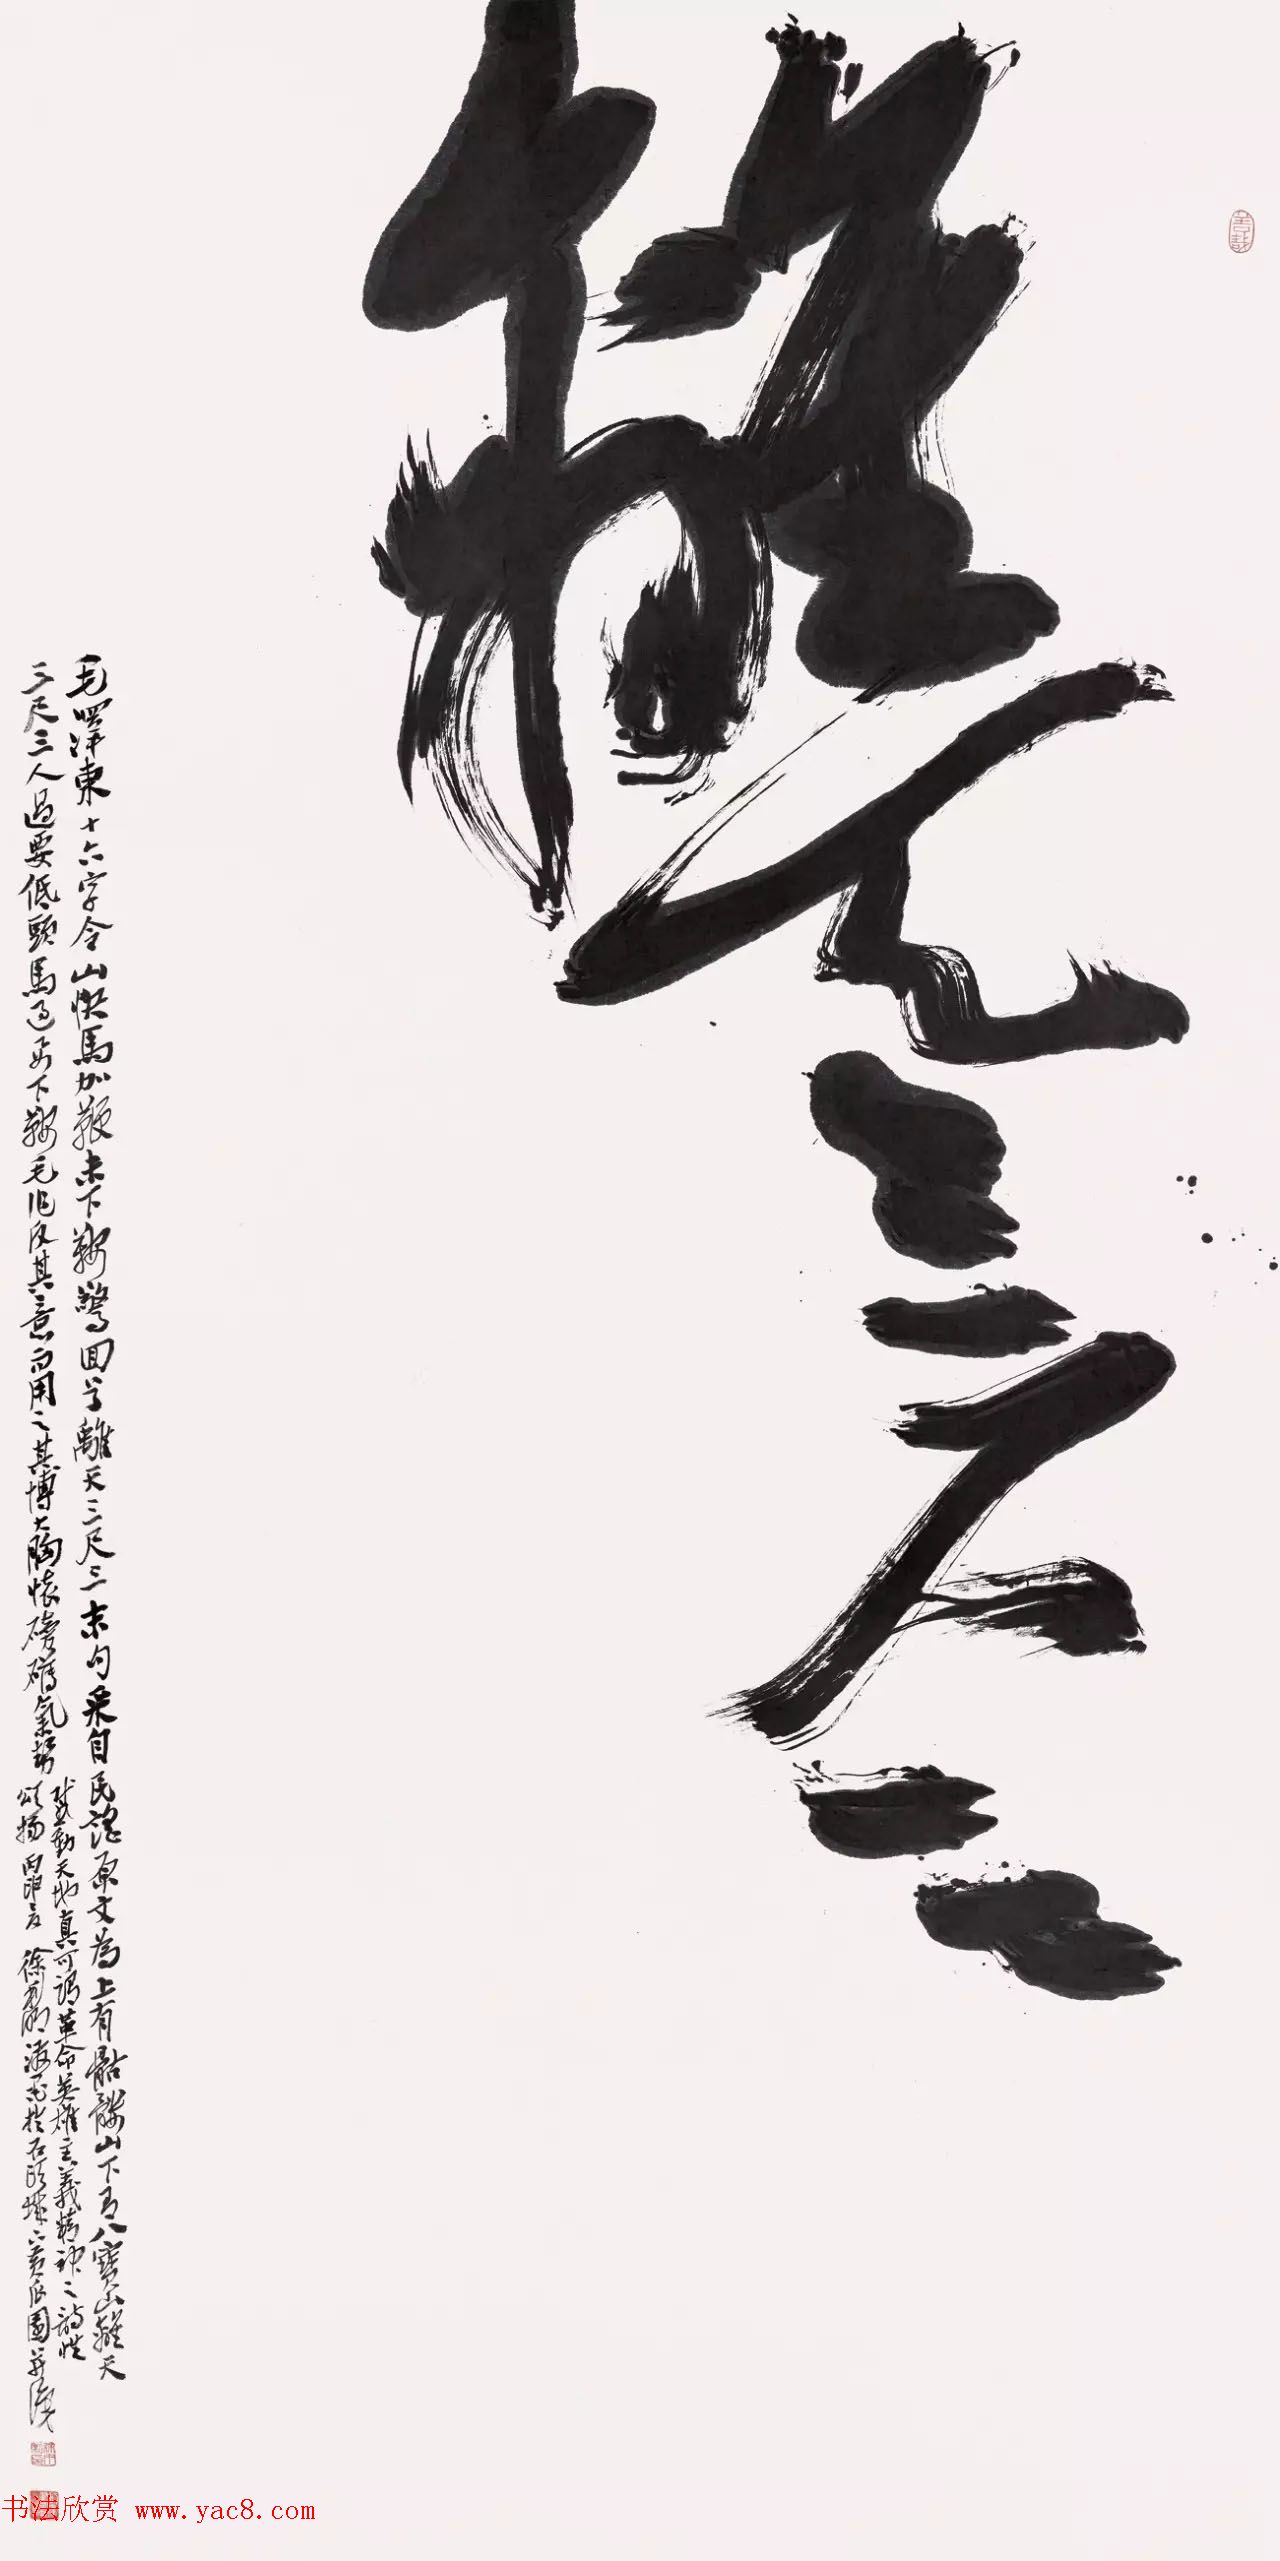 離天三尺三
毛澤東十六字令山快馬加鞭未下鞍驚回首離天三尺三末句采自民謠原文為上有骷髏山下有八寶山離天
三尺三人過要低頭馬過要下鞍毛作反其意而用之其博大胸懷磅礴氣勢
感動天地真可謂革命英雄主義精神之詩性
頌揚丙申 徐 海 於石頭城 黃瓜園
善哉
书法欣赏 www.yac8.com